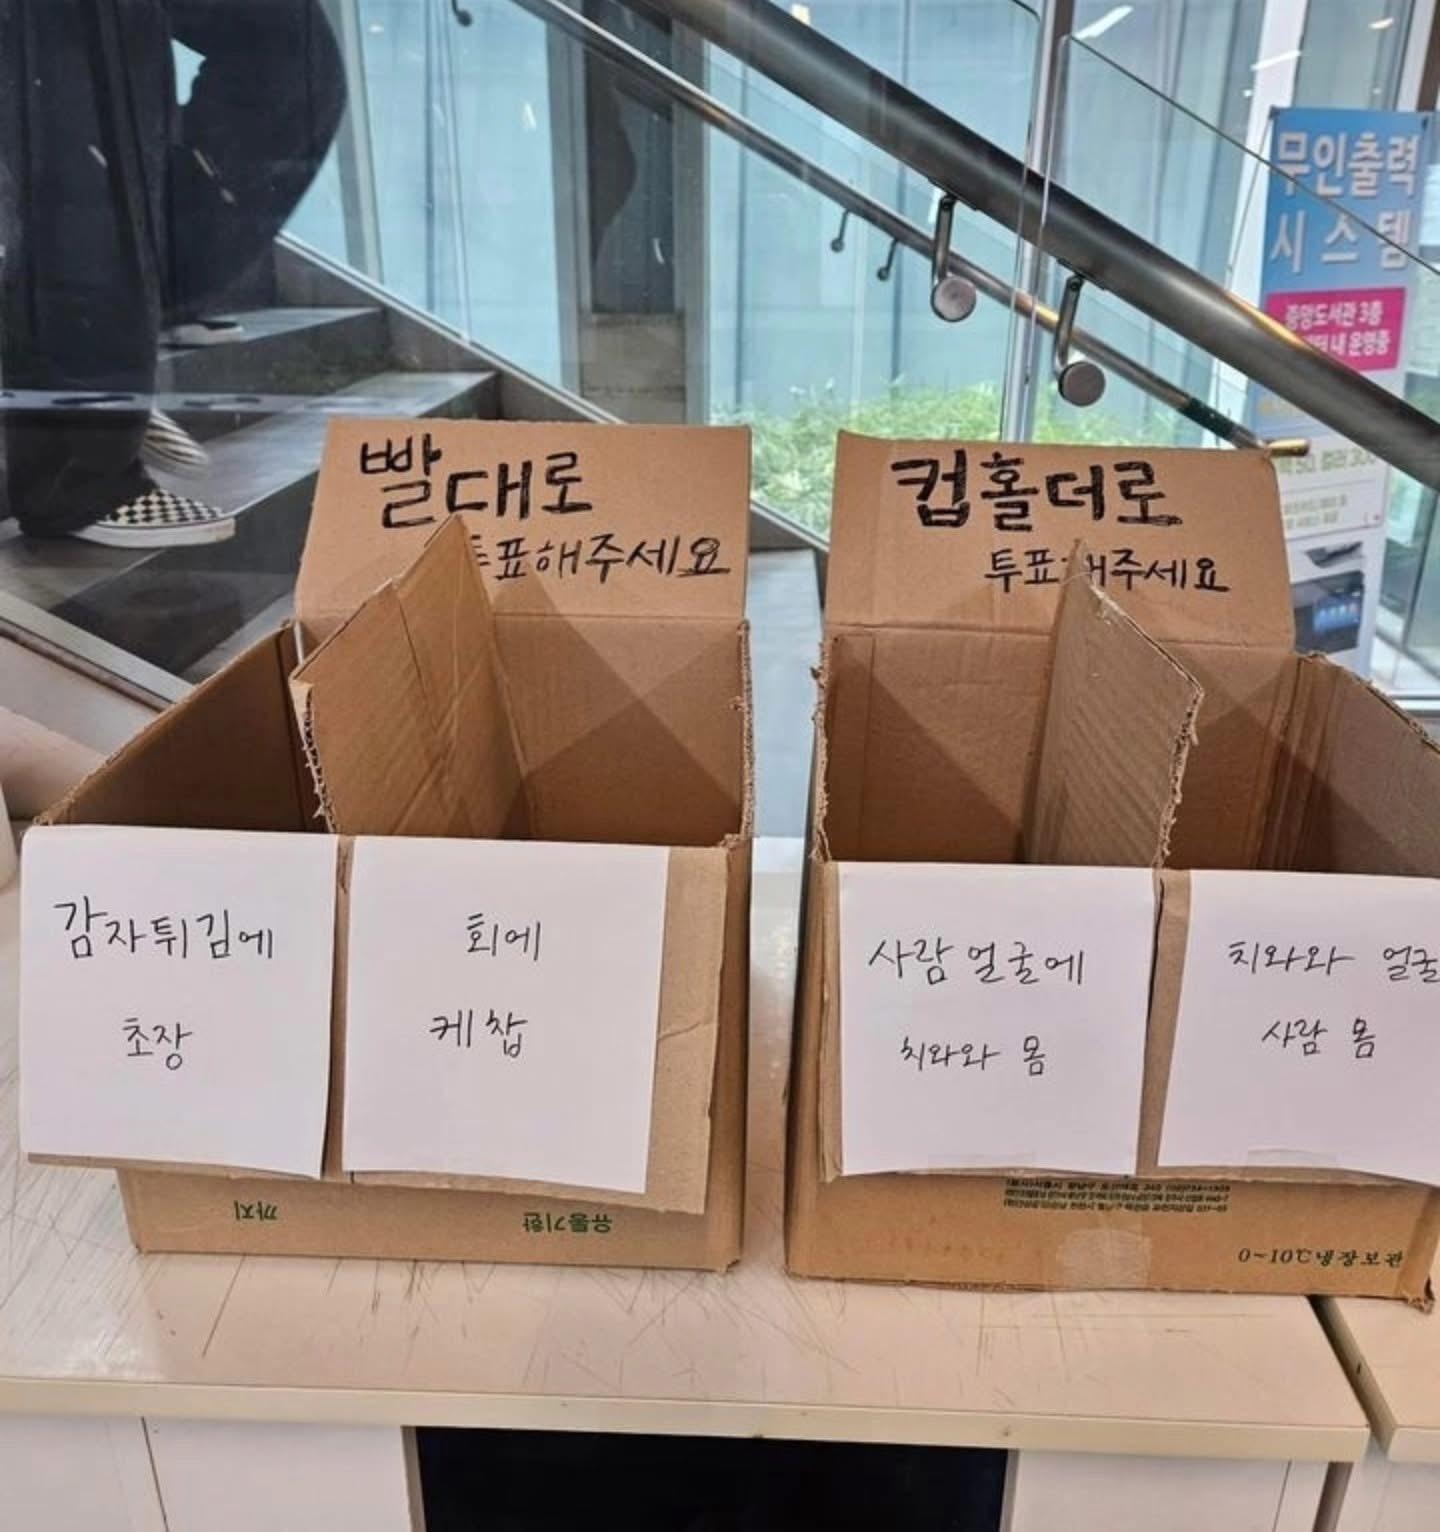 무인출력
시스템
중앙도서관 3층
내 운영중
빨대로
투표해주세요
컵홀더로
투표해주세요
감자튀김에
초장
회에
케찹
사람 얼굴에
치와와 몸
치와와 얼굴
사람 몸
까지
유통기한
0~10℃냉장보관